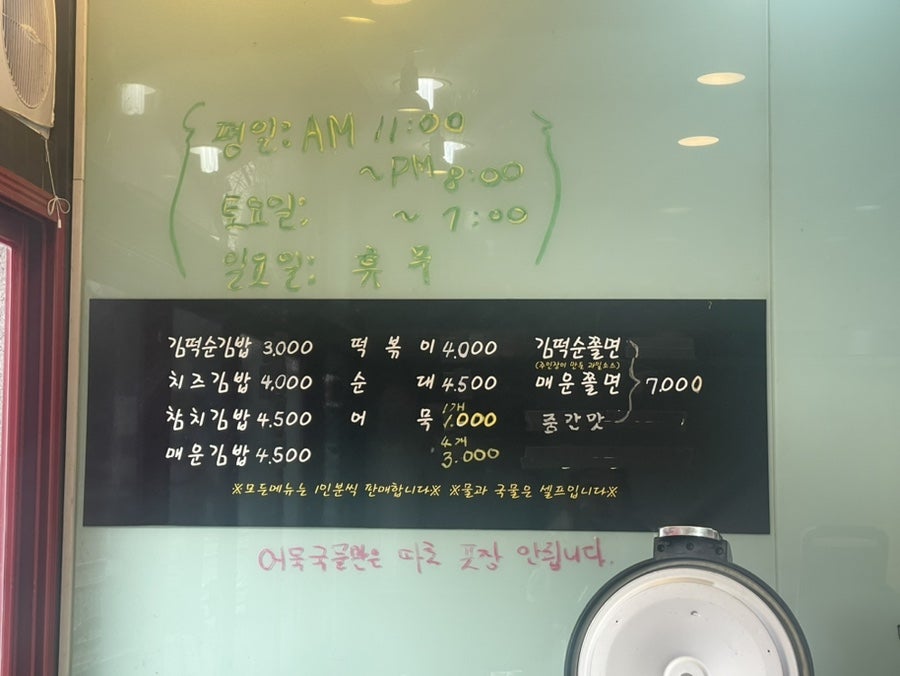 평일: AM 11:00
~PM 8:00
토요일: ~ 7:00
일요일: 휴무
김떡순김밥 3,000 떡볶이 4,000 김떡순쫄면
(주인장이 만든 과일소스)
치즈김밥 4,000 순대 4,500 매운쫄면 7,000
1개
참치김밥 4,500 어묵 1,000 중간맛
4개
매운김밥 4,500 3,000
※모든메뉴는 1인분씩 판매합니다※ ※물과 국물은 셀프입니다※
어묵국물만은 따로 포장 안됩니다.